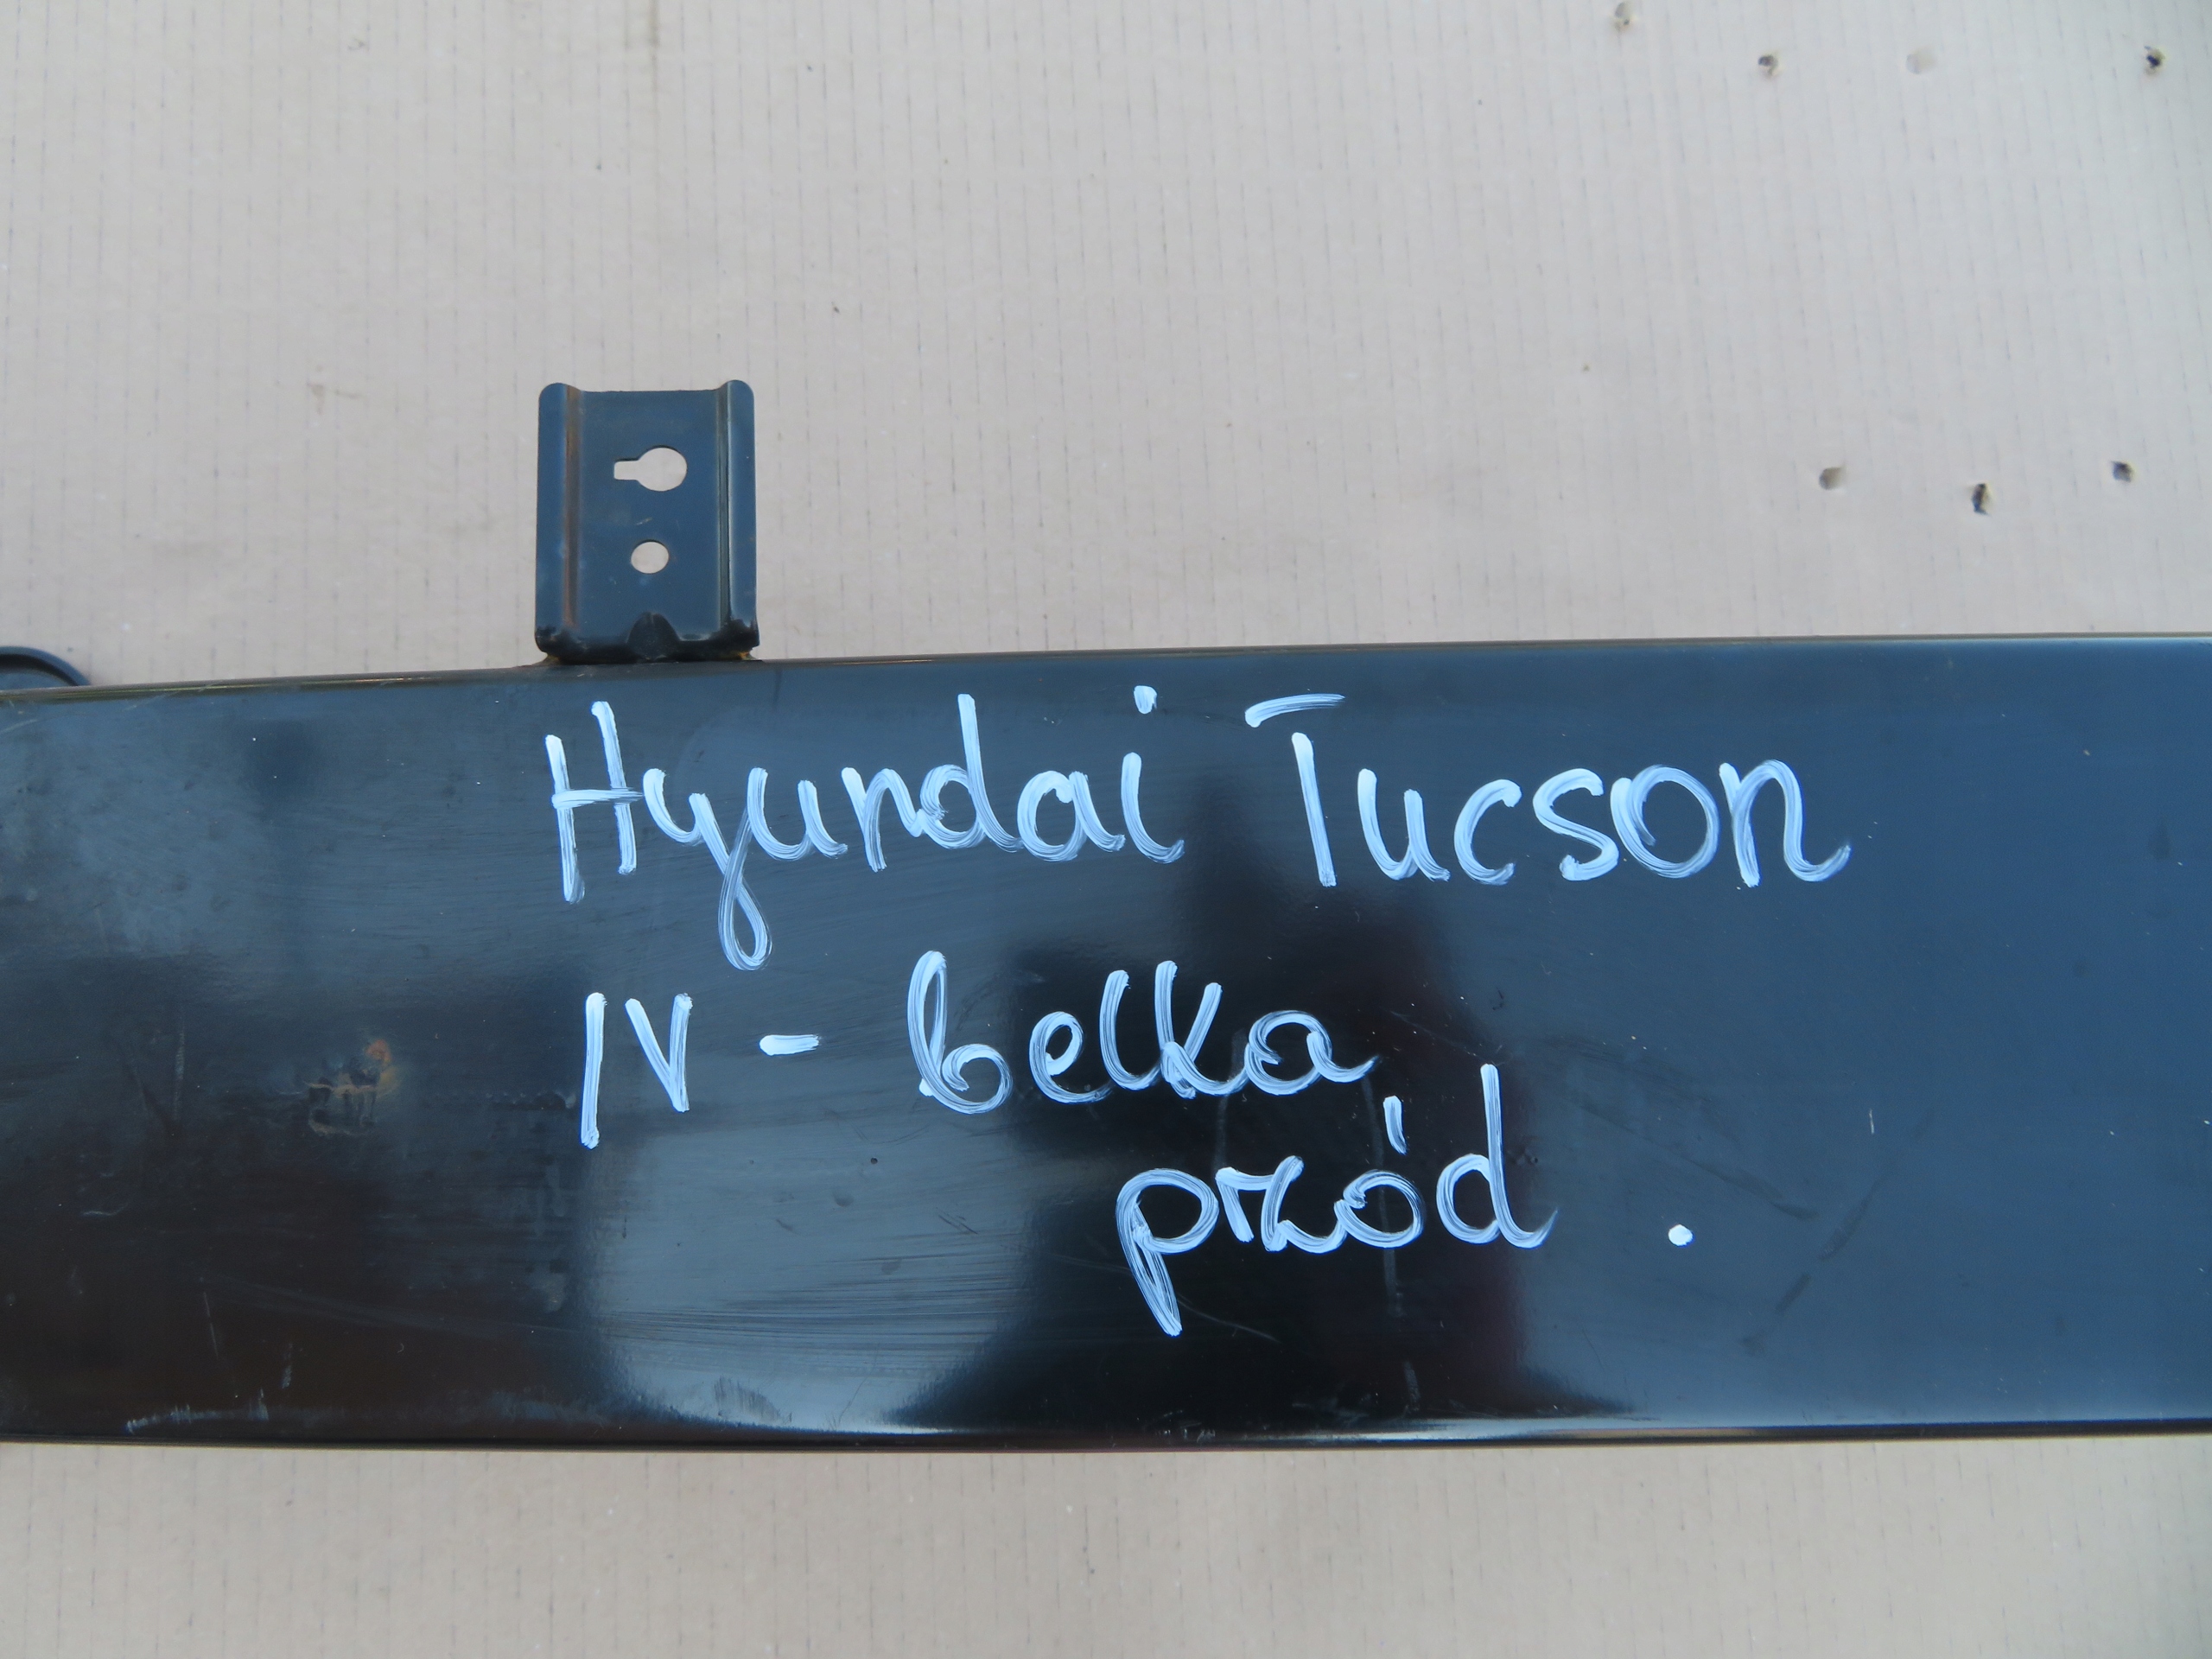 Hyundai Tucson
IV - belka
przód.